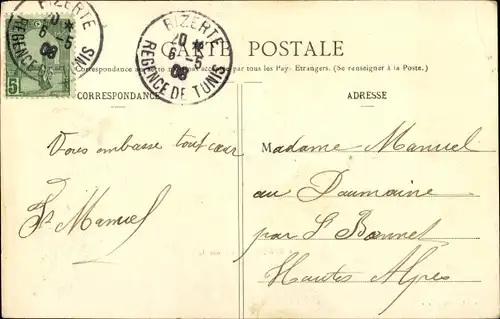 BIZERTE
20 *
6 - 5
08
REGENCE DE TUNIS
5
BIZERTE
20 *
6 - 5
08
REGENCE DE TUNIS
CARTE POSTALE
Correspondance par tous les Pays Etrangers. (Se renseigner à la Poste.)
CORRESPONDANCE
ADRESSE
Vous embasse tout cœur
Manuel
Madame Manuel
au Daumaine
par St Bonnet
Hautes Alpes